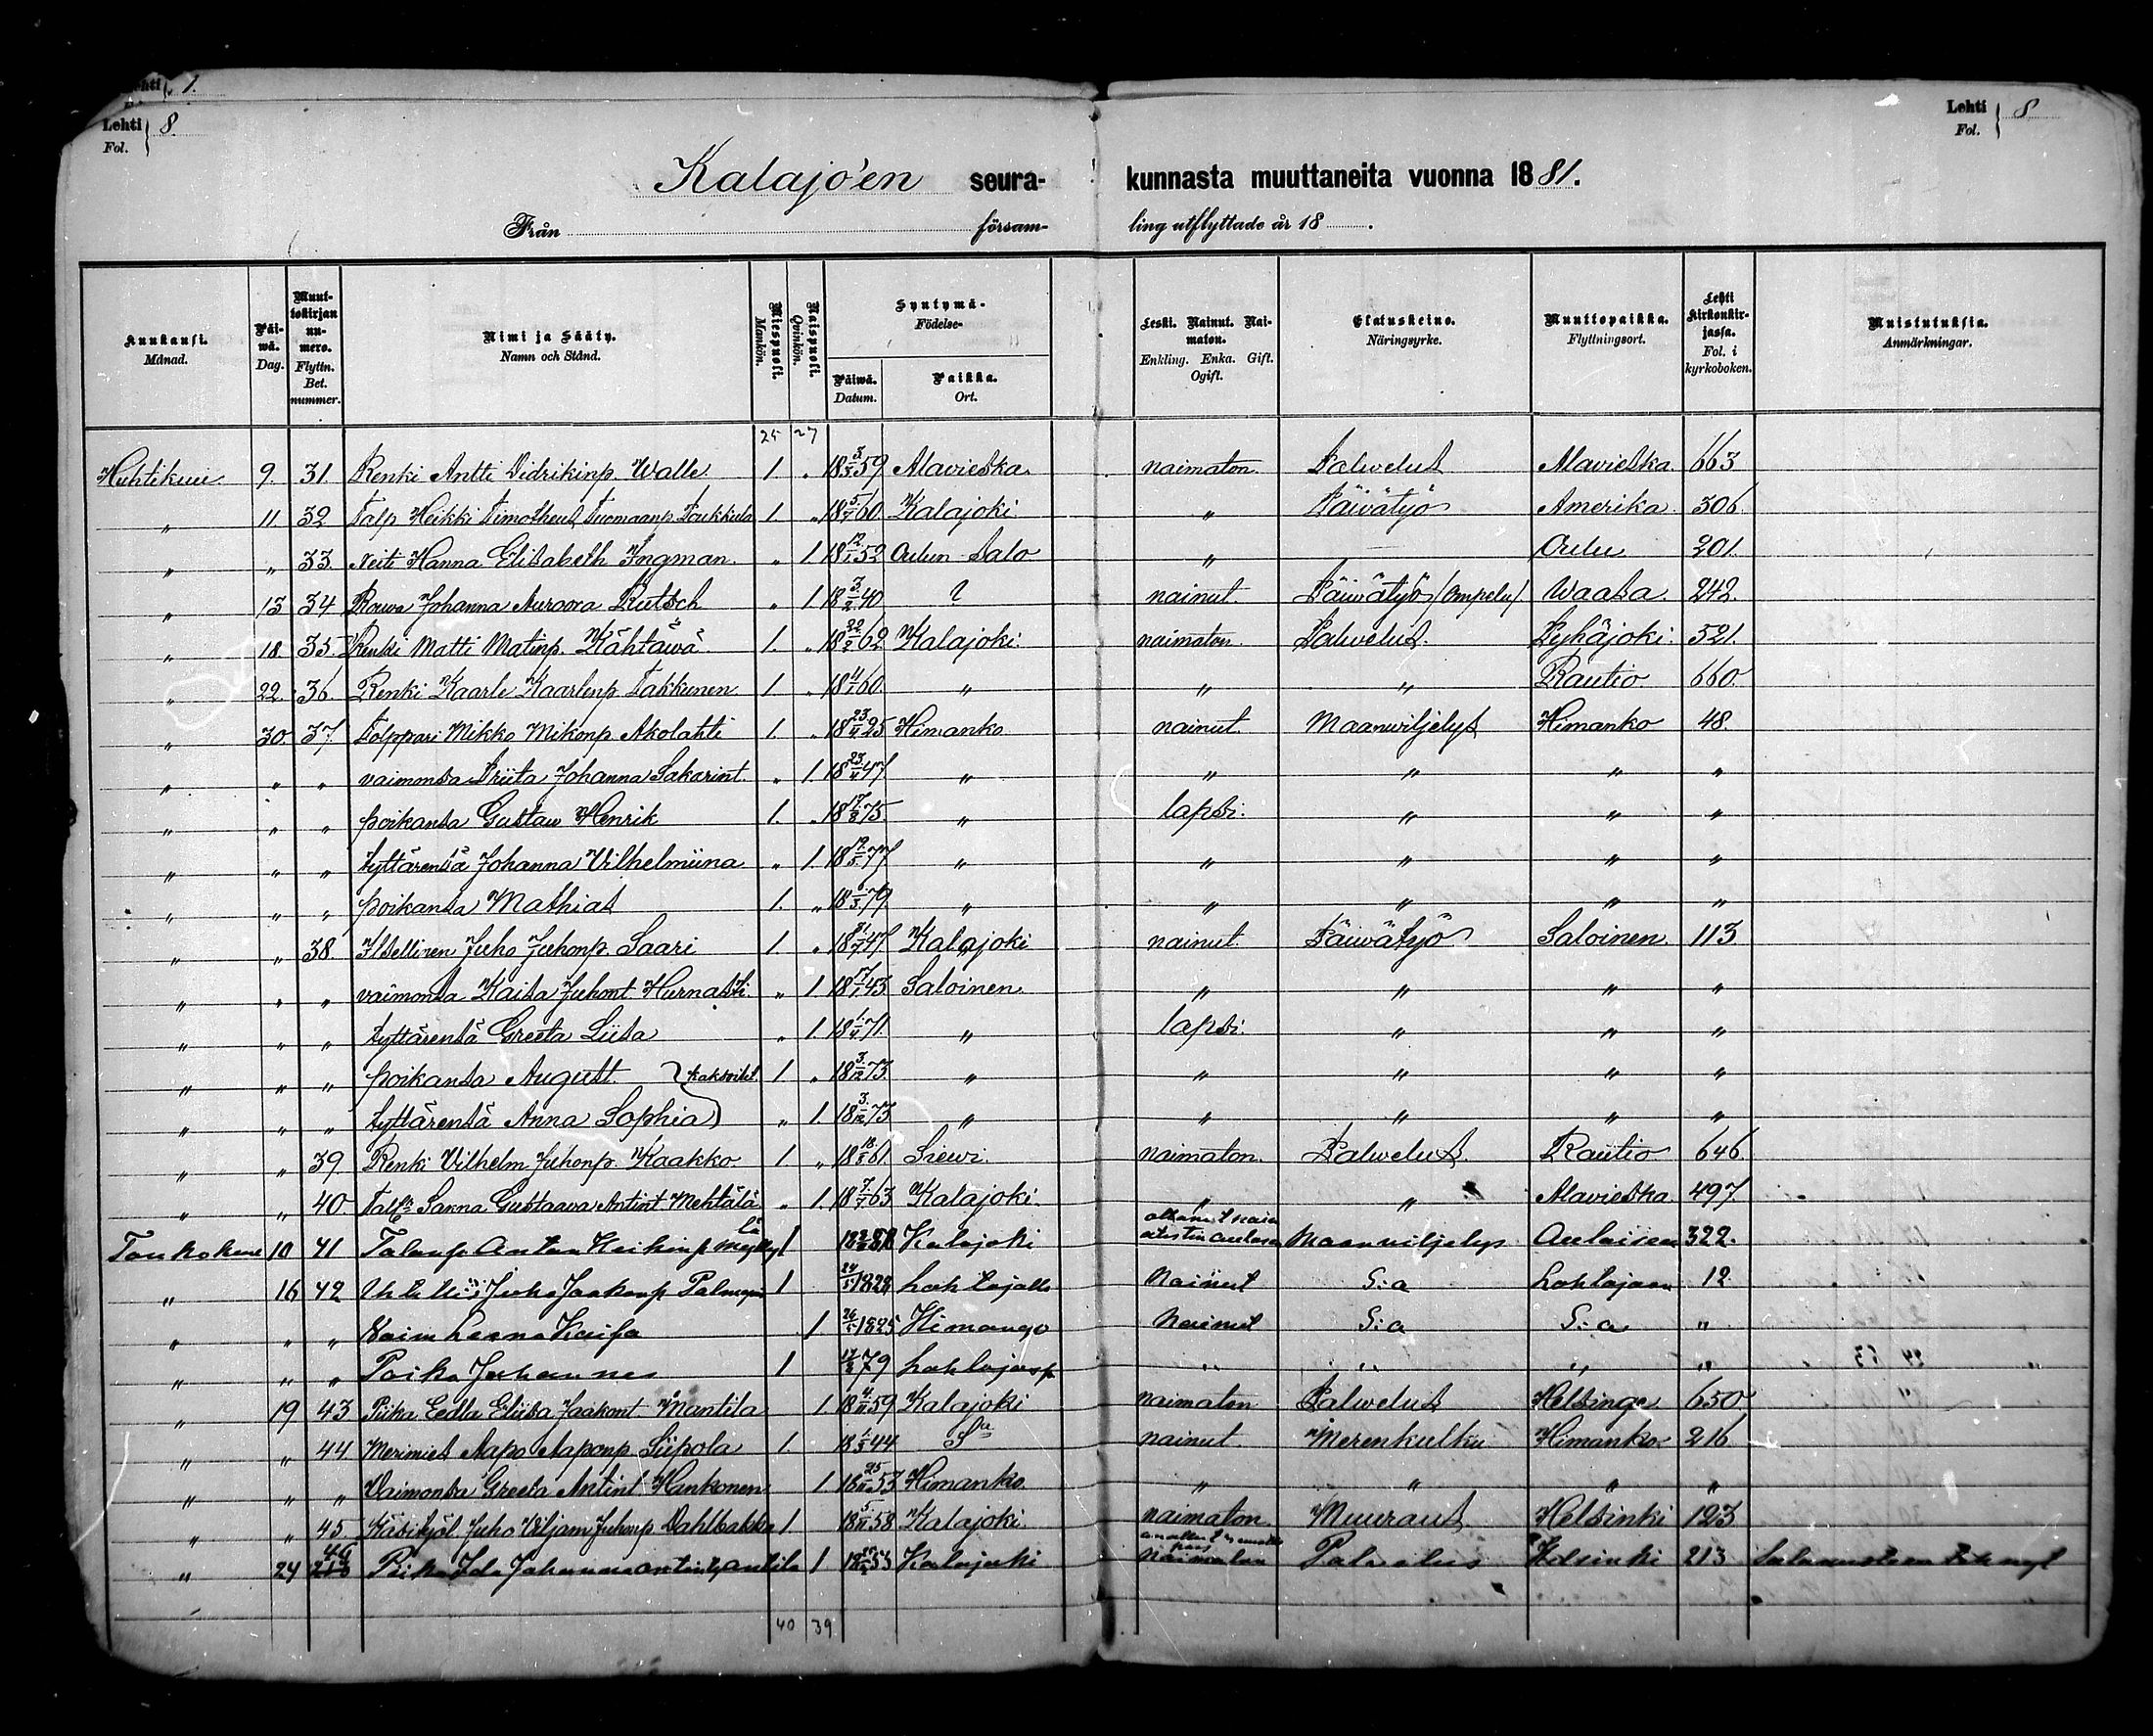 Lehti 1.
Lehti 8.
Fol.
Lehti 8
Fol.
Kalajo'en seura- kunnasta muuttaneita vuonna 1881.
Från försam- ling utflyttade år 18 .
Kuukausi. Månad. Päi-wä. Dag. Muut-tokirjan nu-mero. Flyttn. Bet. nummer. Nimi ja Sääty. Namn och Stånd. Miespuoli. Mankön. Naispuoli. Qvinkön. Syntymä- Födelse- Päiwä. Datum. Paikka. Ort. Leski. Nainut. Nai-maton. Enkling. Enka. Gift. Ogift. Elatuskeino. Näringsyrke. Muuttopaikka. Flyttningsort. Lehti kirkonkir-jassa. Fol. i kyrkoboken. Muistutuksia. Anmärkningar.
25 27
Huhtikuu 9. 31. Renki Antti Didrikinp. Walle 1. „ 18 3/5 59 Alavieska naimaton. Palwelus Alavieska. 663
„ 11 32 Talp Heikki Timotheus Tuomaanp 1. „ 18 60 Kalajoki „ Päivätyö Amerika. 306
„ „ 33. Neiti Hanna Elisabeth Ingman. „ 1. 18 12/1 52 Oulun Salo „ — Oulu 201.
„ 13 34 Rouva Johanna Auroora Rutsch „ 1 18 3/2 40 ? nainut. Päiwätyö (ompelu) Waasa. 242.
„ 18. 35. Renki Matti Matinp. Kähtäwä 1. „ 18 22/2 62. Kalajoki. naimaton. Palwelus. Pyhäjoki. 521.
„ 22. 36. Renki Kaarle Kaarlenp Takkunen 1 „ 18 60. „ „ „ Rautio 660.
„ 30. 37. Torppari Mikko Mikonp Akolahti 1. „ 18 23 25 Himanko nainut. Maanwiljelys Himanko 48.
„ „ „ vaimonsa Priita Johanna Sakarint. „ 1. 18 23 47 „ „ „ „ „
„ „ „ poikansa Gustaw Henrik 1. „ 18 17 75. „ lapsi. „ „ „
„ „ „ tyttärensä Johanna Vilhelmiina „ 1. 18 77 „ „ „ „ „
„ „ „ poikansa Mathias 1. „ 18 79. „ „ „ „ „
„ „ 38. Itsellinen Juho Juhonp. Saari 1. „ 18 47 Kalajoki nainut. Päiwätyö Saloinen. 113
„ „ „ vaimonsa Kaisa Juhont. Hurnasti. „ 1 18 17/1 43 Saloinen. „ „ „ „
„ „ „ tyttärensä Greeta Liisa „ 1. 18 71. „ lapsi. „ „ „
„ „ „ poikansa August. kaksoiset. 1 „ 18 3/12 73. „ „ „ „ „
„ „ „ tyttärensä Anna Sophia „ 1. 18 3/12 73 „ „ „ „ „
„ „ 39. Renki Vilhelm Juhonp. Kaakko. 1. „ 18 18 61. Siewi. naimaton. Palwelus. Rautio 646.
„ „ 40 Sanna Gustaava Antint Mehtälä „ 1. 18 7 63 Kalajoki. „ „ Alavieska. 497
Toukokuu 10 41 Anton Heikinp 1 18 Kalajoki Maanviljelys Oulaisen 322.
„ 16 42 Juho Jaakonp 1 24 1828 Lohtajalla Nainut S:a Lohtajaan 12.
„ „ „ Vaim Leena Kaisa 1 26 1825 Himango Nainut S:a S:a „
„ „ „ Poika Johannes 1 79 „ „ „ „
„ 19 43 Piika Eedla Eliisa Jaakont. Mantila 1. 18 4 59 Kalajoki naimaton Palwelus Helsinge 650.
„ „ 44 Merimies Aapo Aaponp Siipola 1. 18 1 44 Sn nainut. Merenkulku Himanko 216
„ „ „ Vaimonsa Greeta Antint Hankonen 1 18 25 53 Himanko. „ „ „ „
„ „ 45 Käsityöl Juho Viljam Juhonp Dahlbakka 1. 18 5 58 Kalajoki. naimaton. Muuraus Helsinki 123
„ 24 46 Piika Ida Johanna Antint Antila 1 18 53 Kalajoki naimaton Palvelus Helsinki 213
40 39